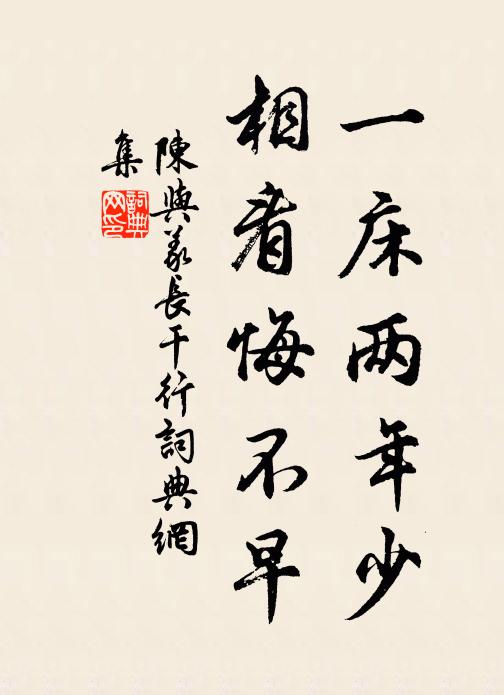 一床两年少
相看悔不早
陳與义長干行詞典網
集
詞典
网印